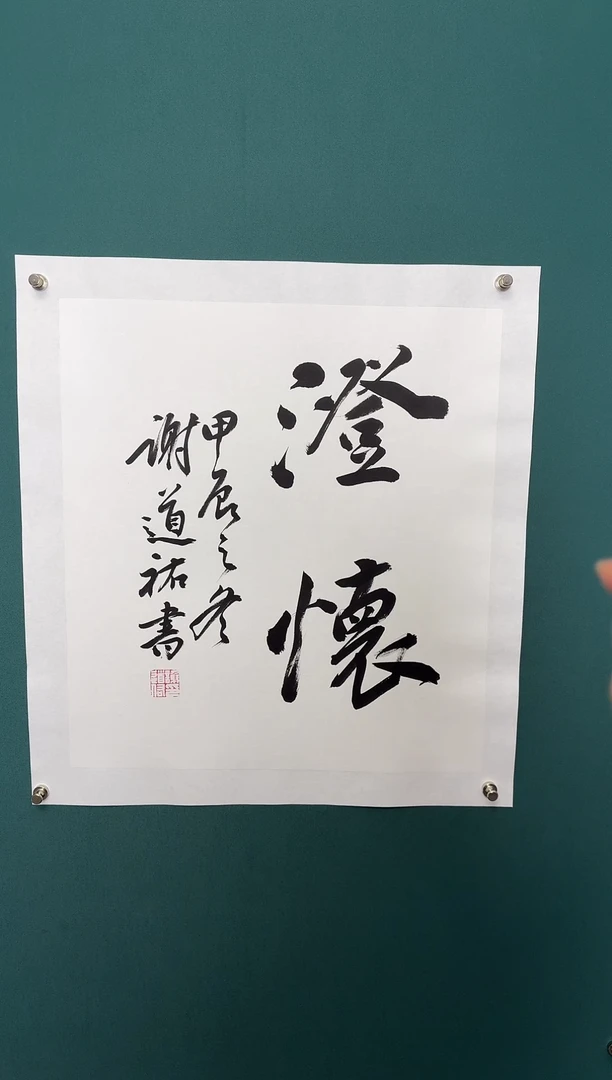 澄懷
甲辰之冬
谢道祐書